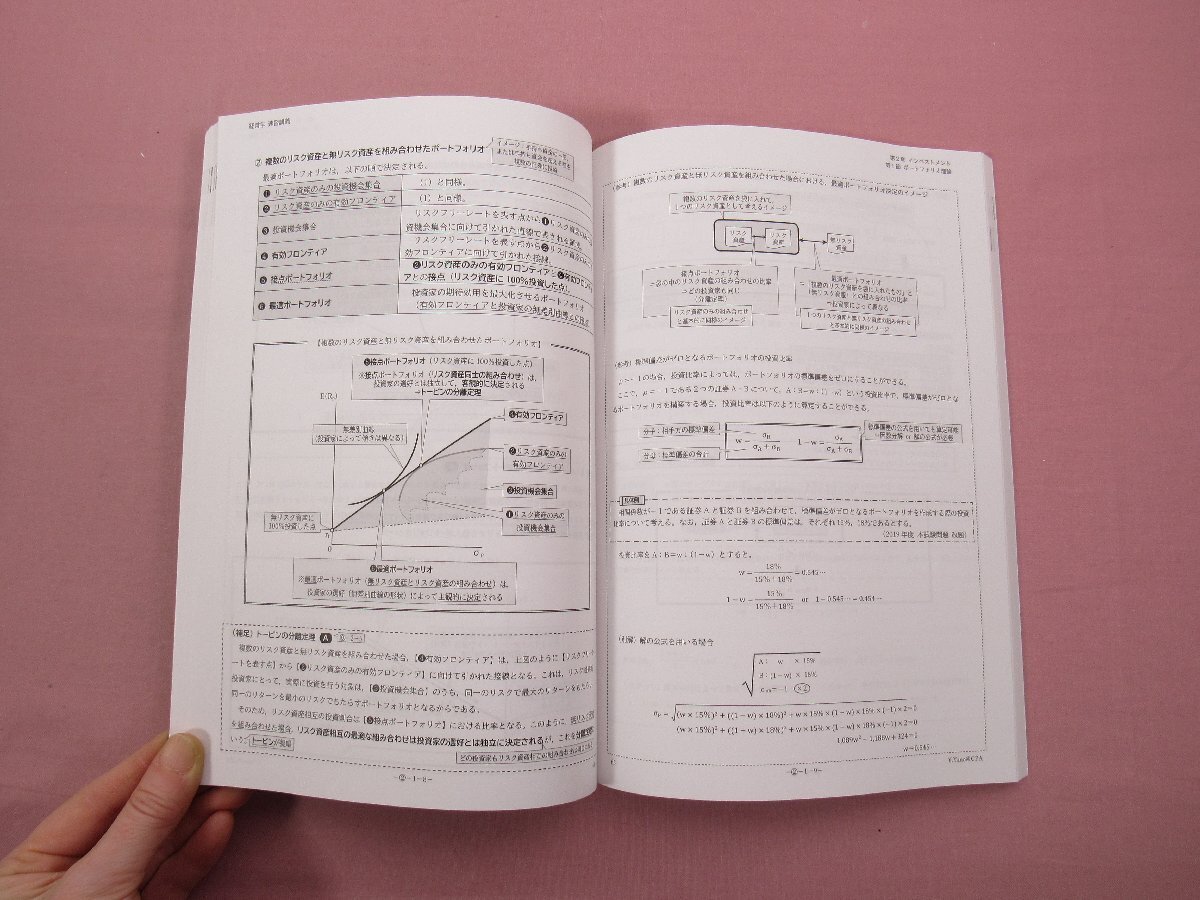 経営学 論習講義
② 複数のリスク資産と無リスク資産を組み合わせたポートフォリオ
最適ポートフォリオは、以下の順で決定される。
❶ リスク資産のみの投資機会集合
(1) と同様。
❷ リスク資産のみの有効フロンティア
(1) と同様。
❸ 投資機会集合
リスクフリーレートを表す点から❶リスク資産のみの
資機会集合に向けて引かれた直線で表される領域
❹ 有効フロンティア
リスクフリーレートを表す点から❷リスク資産のみの
効フロンティアに向けて引かれた接線。
❺ 接点ポートフォリオ
❷リスク資産のみの有効フロンティアと❹有効フロン
アとの接点（リスク資産に 100%投資した点）
❻ 最適ポートフォリオ
投資家の期待効用を最大化させるポートフォリオ
【複数のリスク資産と無リスク資産を組み合わせたポートフォリオ】
❺接点ポートフォリオ（リスク資産に 100%投資した点）
※接点ポートフォリオ（リスク資産同士の組み合わせ）は、
投資家の選好とは独立して、客観的に決定される
→トービンの分離定理
無差別曲線
（投資家によって傾きは異なる）
❹有効フロンティア
❷リスク資産のみの
有効フロンティア
❸投資機会集合
❶リスク資産のみの
投資機会集合
無リスク資産に
100%投資した点
0
❻最適ポートフォリオ
※最適ポートフォリオ（無リスク資産とリスク資産の組み合わせ）は、
投資家の選好（無差別曲線の形状）によって主観的に決定される
（補足）トービンの分離定理 A
複数のリスク資産と無リスク資産を組み合わせた場合、【❹有効フロンティア】は、上図のように【リスクフリーレ
ートを表す点】から【❷リスク資産のみの有効フロンティア】に向けて引かれた接線となる。これは、リスク回避的
投資家にとって、実際に投資を行う対象は、【❸投資機会集合】のうち、同一のリスクで最大のリターンをもたらし、
同一のリターンを最小のリスクでもたらすポートフォリオとなるからである。
そのため、リスク資産相互の投資割合は【❺接点ポートフォリオ】における比率となる。このように、
を組み合わせた場合、リスク資産相互の最適な組み合わせは投資家の選好とは独立に決定されるが、これを分離定理
いう。トービンが提唱
－②－1－8－
第2章 インベストメント
第1節 ポートフォリオ理論
（参考）複数のリスク資産と無リスク資産を組み合わせた場合における、最適ポートフォリオ決定のイメージ
複数のリスク資産を袋に入れて、
1つのリスク資産として考えるイメージ
リスク
資産
リスク
資産
無リスク
資産
接点ポートフォリオ
＝袋の中のリスク資産の組み合わせの比率
→どの投資家も同じ
（分離定理）
リスク資産のみの組み合わせ
と基本的に同様のイメージ
最適ポートフォリオ
＝「複数のリスク資産を袋に入れたもの」と
「無リスク資産」との組み合わせの比率
→投資家によって異なる
1つのリスク資産と無リスク資産の組み合わせ
と基本的に同様のイメージ
（参考）標準偏差がゼロとなるポートフォリオの投資比率
ρ＝－1の場合、投資比率によっては、ポートフォリオの標準偏差をゼロにすることができる。
ここで、ρ＝－1である2つの証券A・Bについて、A：B＝w：(1－w) という投資比率で、標準偏差がゼロとな
るポートフォリオを構築する場合、投資比率は以下のように算定することができる。
分子：相手方の標準偏差
分母：標準偏差の合計
w＝ σB / σA＋σB 1－w＝ σA / σA＋σB
標準偏差の公式を用いても算定可能
→因数分解 or 解の公式が必要
具体例
相関係数が－1である証券Aと証券Bを組み合わせて、標準偏差がゼロとなるポートフォリオを作成する際の投資
比率について考える。なお、証券Aと証券Bの標準偏差は、それぞれ15%、18%であるとする。
（2019年度 本試験問題 改題）
投資比率をA：B＝w：(1－w) とすると、
w＝ 18% / 15%＋18% ＝0.545…
1－w＝ 15% / 15%＋18% or 1－0.545…＝0.454…
（別解）解の公式を用いる場合
A： w ×15%
B：(1－w) ×18%
×2
σP＝√(w×15%)²＋((1－w)×18%)²＋w×15%×(1－w)×18%×(－1)×2＝0
(w×15%)²＋((1－w)×18%)²＋w×15%×(1－w)×18%×(－1)×2＝0
1,089w²－1,188w＋324＝0
w＝0.545
－②－1－9－